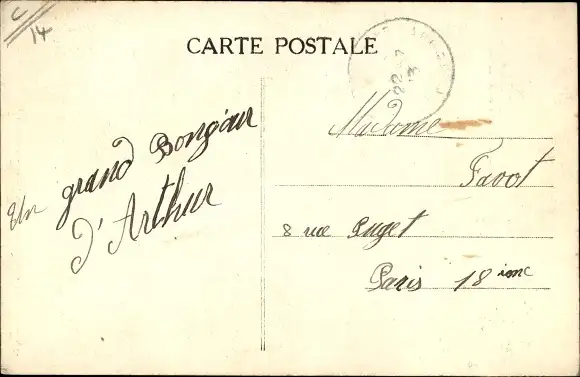 C
14
CARTE POSTALE
22
Un grand Bonjour
d'Arthur
Madame
Favot
8 rue Puget
Paris 18 ime